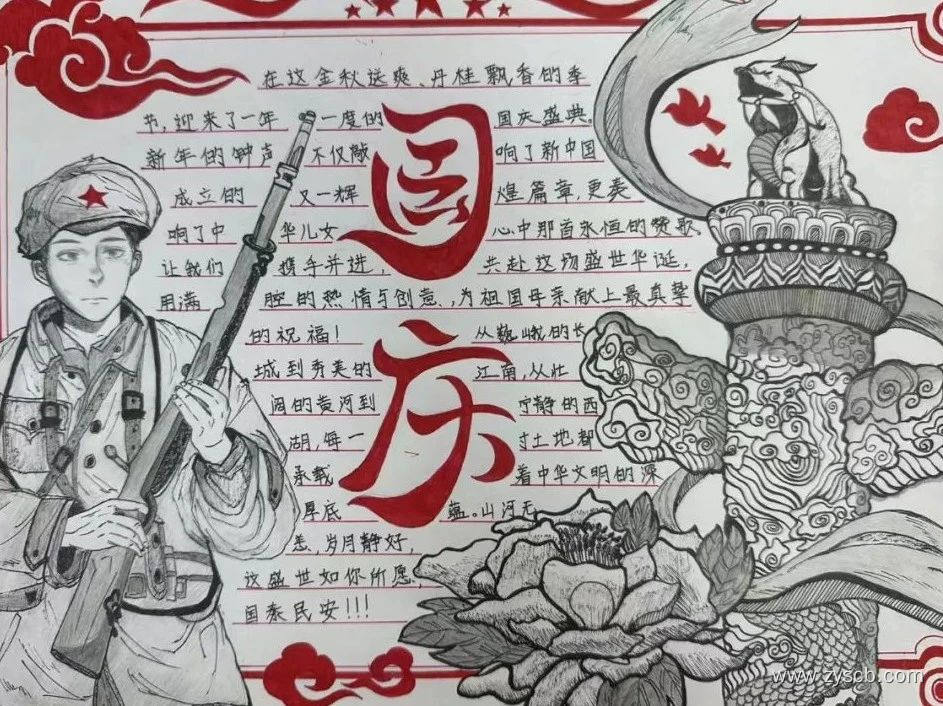 在这金秋送爽、丹桂飘香的季
节,迎来了一年一度的国庆盛典。
新年的钟声不仅敲响了新中国
成立的又一辉煌篇章,更奏
响了中华儿女心中那首永恒的赞歌,
让我们携手并进,共赴这场盛世华诞,
用满腔的热情与创意、为祖国母亲献上最真挚
的祝福!从巍峨的长
城到秀美的江南,从壮
阔的黄河到宁静的西
湖,每一寸土地都
承载着中华文明的深
厚底蕴。山河无
恙,岁月静好,
这盛世如你所愿,
国泰民安!!!
国庆
www.zyscb.com